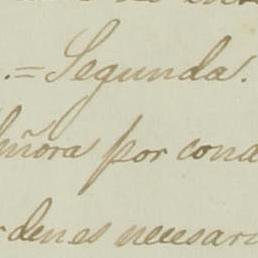 .= Segunda.
eñora por cond
rdenes necesari